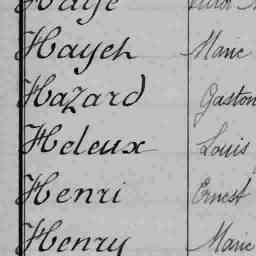 Haye
Hayeh Marie
Hazard Gaston
Heleux Louis
Henri Ernest
Henry Marie